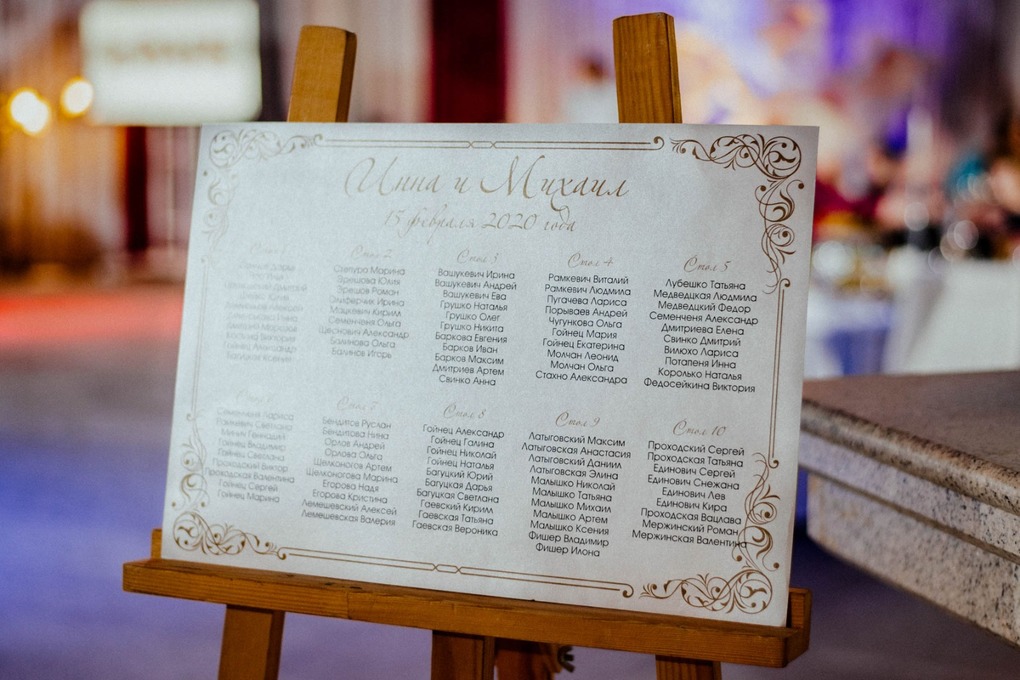 Инна и Михаил
15 февраля 2020 года
Стол 2
Орешова Юлия
Орешов Роман
Олиферчик Ирина
Мацкевич Кирилл
Семенченя Ольга
Щеснович Александр
Балинова Ольга
Балинов Игорь
Стол 3
Вашукевич Ирина
Вашукевич Андрей
Вашукевич Ева
Грушко Наталья
Грушко Олег
Грушко Никита
Баркова Евгения
Барков Иван
Барков Максим
Дмитриев Артем
Свинко Анна
Стол 4
Рамкевич Виталий
Рамкевич Людмила
Пугачева Лариса
Порываев Андрей
Чугункова Ольга
Гойнец Мария
Гойнец Екатерина
Молчан Леонид
Молчан Ольга
Стахно Александра
Стол 5
Лубешко Татьяна
Медведцкая Людмила
Медведцкий Федор
Семенченя Александр
Дмитриева Елена
Свинко Дмитрий
Вилюхо Лариса
Потапеня Инна
Королько Наталья
Федосейкина Виктория
Семенченя Лариса
Рамкевич Светлана
Гойнец Владимир
Гойнец Светлана
Проходский Виктор
Проходская Валентина
Гойнец Сергей
Гойнец Марина
Стол 7
Бендитов Руслан
Бендитова Нина
Орлов Андрей
Орлова Ольга
Щелконогов Артем
Щелконогова Марина
Егорова Надя
Егорова Кристина
Лемешевский Алексей
Лемешевская Валерия
Стол 8
Гойнец Александр
Гойнец Галина
Гойнец Николай
Гойнец Наталья
Багуцкий Юрий
Багуцкая Дарья
Багуцкая Светлана
Гаевский Кирилл
Гаевская Татьяна
Гаевская Вероника
Стол 9
Латыговский Максим
Латыговская Анастасия
Латыговский Даниил
Латыговская Элина
Малышко Николай
Малышко Татьяна
Малышко Михаил
Малышко Артем
Малышко Ксения
Фишер Владимир
Фишер Илона
Стол 10
Проходский Сергей
Проходская Татьяна
Единович Сергей
Единович Снежана
Единович Лев
Единович Кира
Проходская Вацлава
Мержинский Роман
Мержинская Валентина